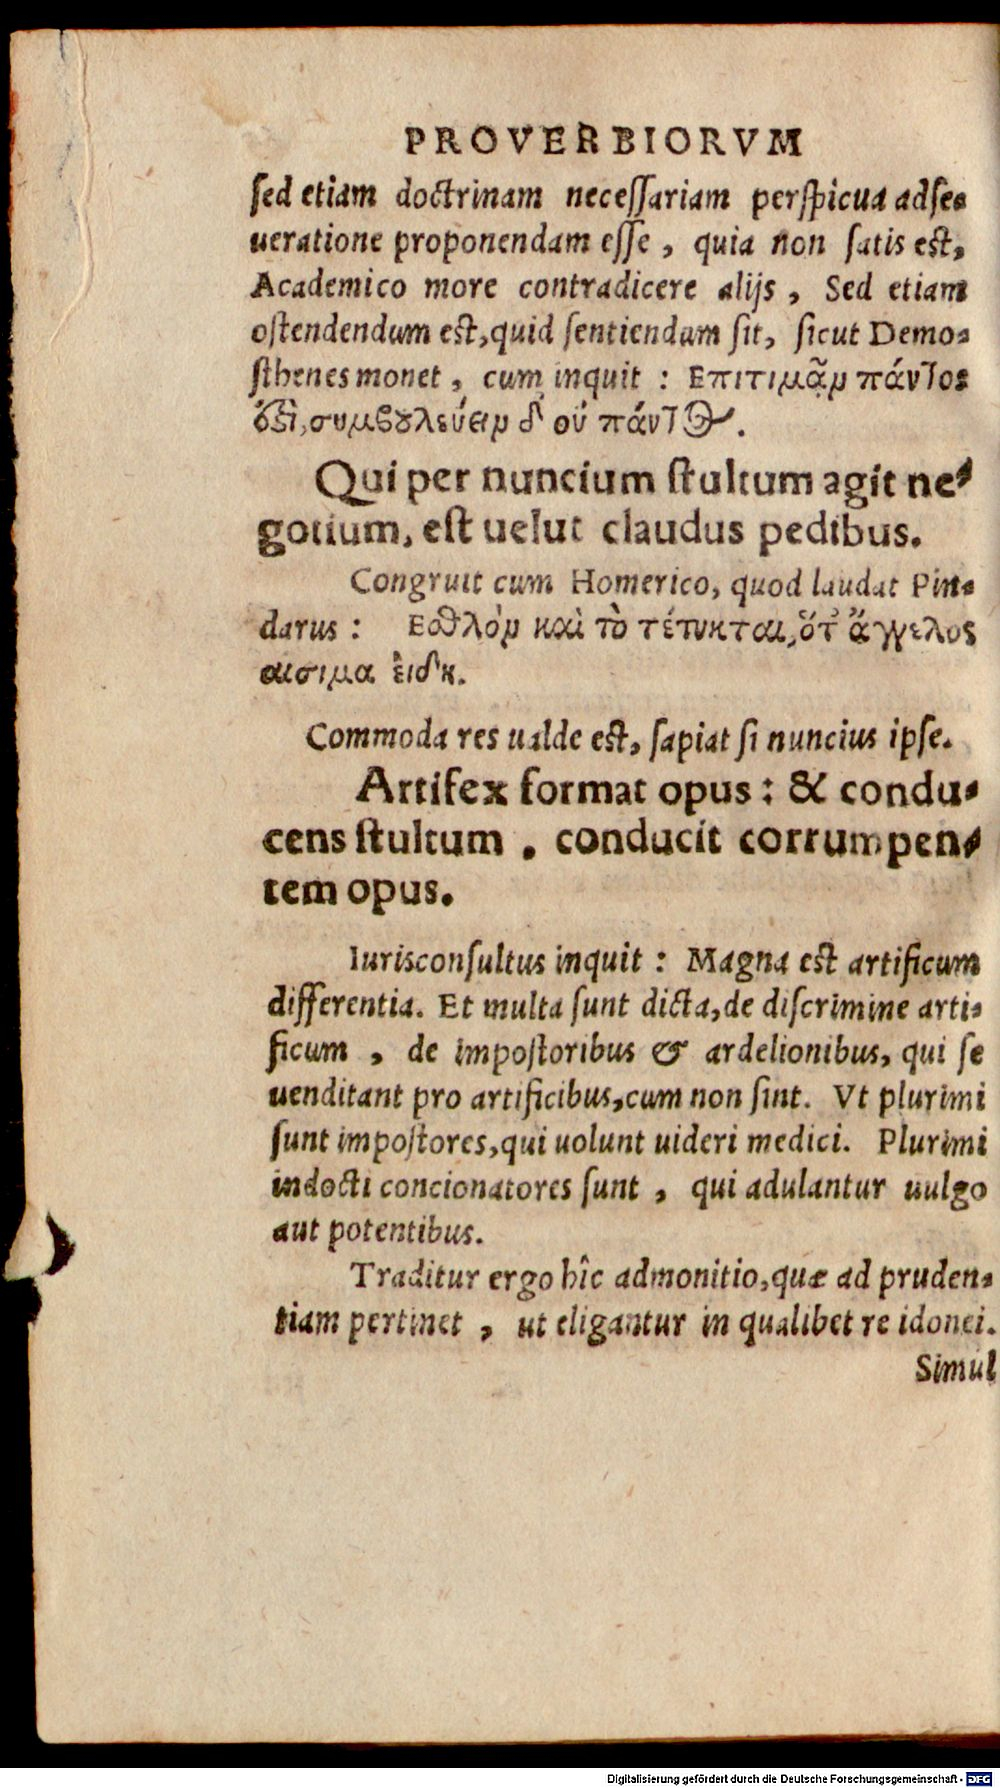 PROVERBIORVM
sed etiam doctrinam necessariam perspicua adse-
ueratione proponendam esse, quia non satis est,
Academico more contradicere alijs, Sed etiam
ostendendum est, quid sentiendum sit, sicut Demo-
sthenes monet, cum inquit: Επιτιμᾷν πάντος
ὅξι, συμβουλεύειν δ' οὐ πάντος.
Qui per nuncium stultum agit ne-
gotium, est uelut claudus pedibus.
Congruit cum Homerico, quod laudat Pin-
darus: Εσθλὸν καὶ τὸ τέτυκται, ὅτ' ἄγγελος
αισιμα εἰδῇ.
Commoda res ualde est, sapiat si nuncius ipse.
Artifex format opus: & condu-
cens stultum, conducit corrumpen-
tem opus.
Iurisconsultus inquit: Magna est artificum
differentia. Et multa sunt dicta, de discrimine arti-
ficum, de impostoribus & ardelionibus, qui se
uenditant pro artificibus, cum non sint. Vt plurimi
sunt impostores, qui uolunt uideri medici. Plurimi
indocti concionatores sunt, qui adulantur uulgo
aut potentibus.
Traditur ergo hîc admonitio, quæ ad pruden-
tiam pertinet, ut eligantur in qualibet re idonei.
Simul
Digitalisierung gefördert durch die Deutsche Forschungsgemeinschaft - DFG